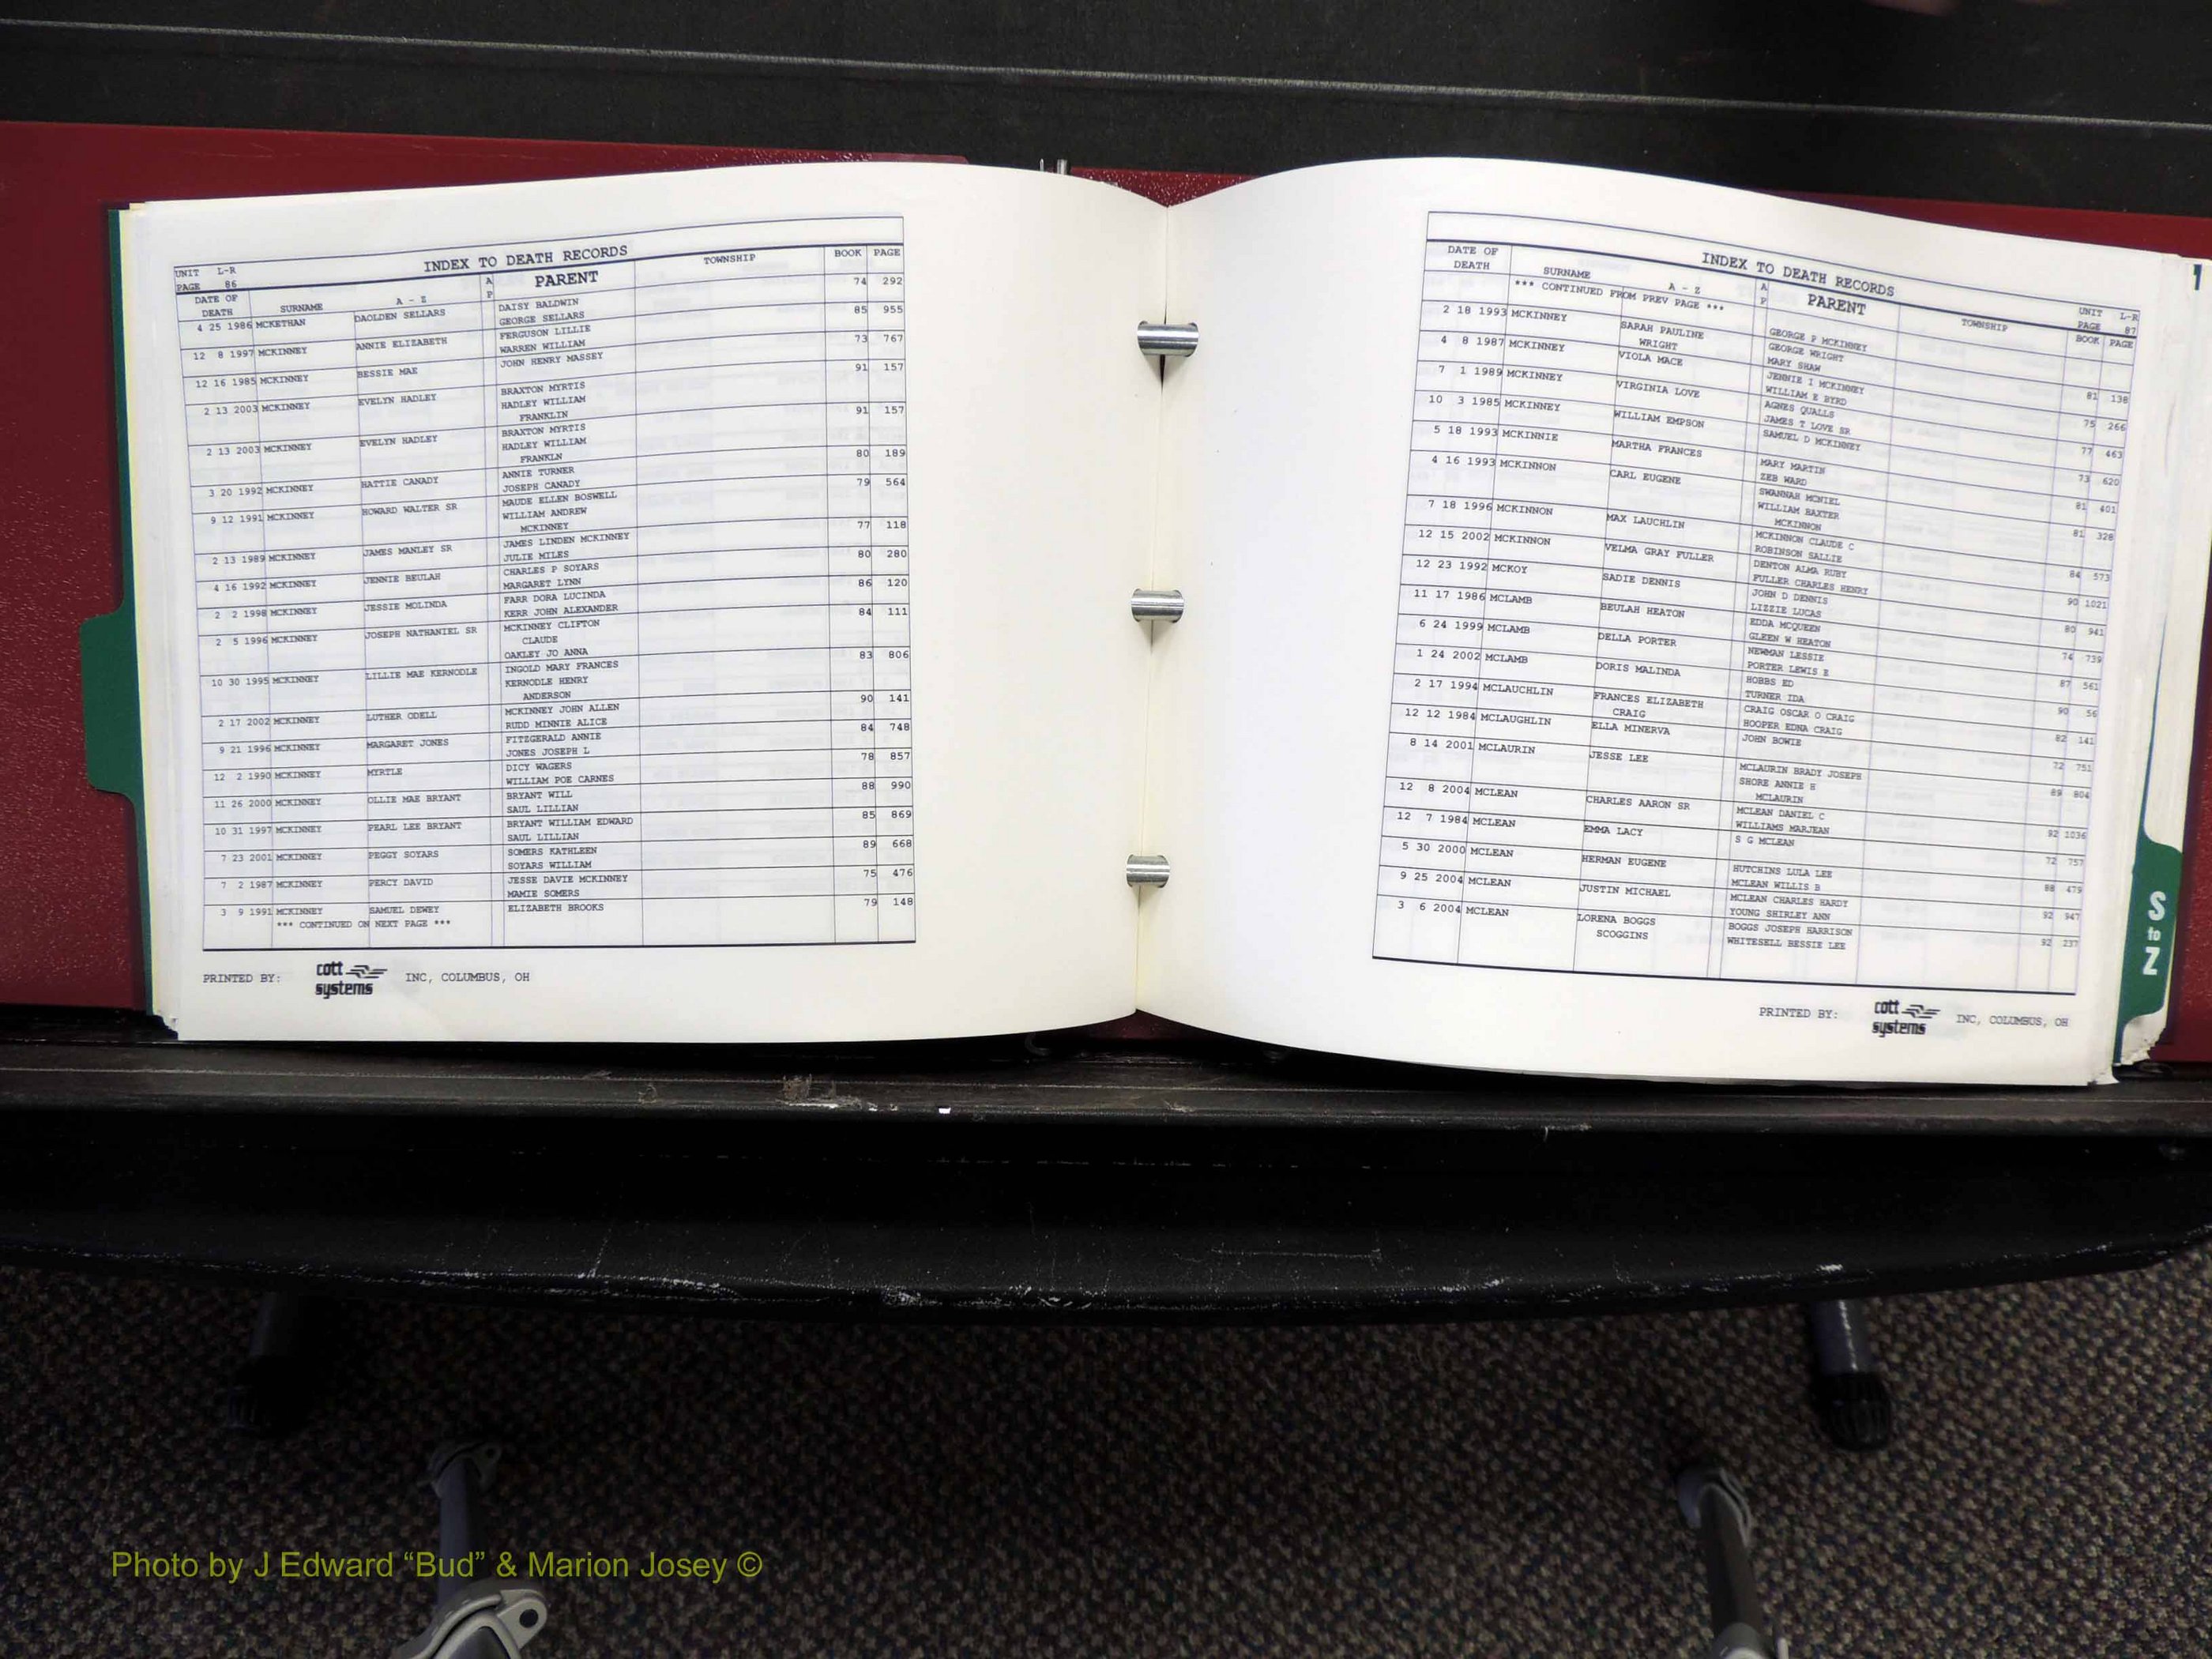 INDEX TO DEATH RECORDS
UNIT L-R
PAGE 86
DATE OF DEATH SURNAME A - Z A P PARENT TOWNSHIP BOOK PAGE
4 25 1986 MCKETHAN DAOLDEN SELLARS DAISY BALDWIN 74 292
GEORGE SELLARS
12 8 1997 MCKINNEY ANNIE ELIZABETH FERGUSON LILLIE 85 955
WARREN WILLIAM
12 16 1985 MCKINNEY BESSIE MAE JOHN HENRY MASSEY 73 767
2 13 2003 MCKINNEY EVELYN HADLEY BRAXTON MYRTIS 91 157
HADLEY WILLIAM
FRANKLIN
2 13 2003 MCKINNEY EVELYN HADLEY BRAXTON MYRTIS 91 157
HADLEY WILLIAM
FRANKLN
3 20 1992 MCKINNEY HATTIE CANADY ANNIE TURNER 80 189
JOSEPH CANADY
9 12 1991 MCKINNEY HOWARD WALTER SR MAUDE ELLEN BOSWELL 79 564
WILLIAM ANDREW
MCKINNEY
2 13 1989 MCKINNEY JAMES MANLEY SR JAMES LINDEN MCKINNEY 77 118
JULIE MILES
4 16 1992 MCKINNEY JENNIE BEULAH CHARLES P SOYARS 80 280
MARGARET LYNN
2 2 1998 MCKINNEY JESSIE MOLINDA FARR DORA LUCINDA 86 120
KERR JOHN ALEXANDER
2 5 1996 MCKINNEY JOSEPH NATHANIEL SR MCKINNEY CLIFTON 84 111
CLAUDE
OAKLEY JO ANNA
10 30 1995 MCKINNEY LILLIE MAE KERNODLE INGOLD MARY FRANCES 83 806
KERNODLE HENRY
ANDERSON
2 17 2002 MCKINNEY LUTHER ODELL MCKINNEY JOHN ALLEN 90 141
RUDD MINNIE ALICE
9 21 1996 MCKINNEY MARGARET JONES FITZGERALD ANNIE 84 748
JONES JOSEPH L
12 2 1990 MCKINNEY MYRTLE DICY WAGERS 78 857
WILLIAM POE CARNES
11 26 2000 MCKINNEY OLLIE MAE BRYANT BRYANT WILL 88 990
SAUL LILLIAN
10 31 1997 MCKINNEY PEARL LEE BRYANT BRYANT WILLIAM EDWARD 85 869
SAUL LILLIAN
7 23 2001 MCKINNEY PEGGY SOYARS SOMERS KATHLEEN 89 668
SOYARS WILLIAM
7 2 1987 MCKINNEY PERCY DAVID JESSE DAVIE MCKINNEY 75 476
MAMIE SOMERS
3 9 1991 MCKINNEY SAMUEL DEWEY ELIZABETH BROOKS 79 148
*** CONTINUED ON NEXT PAGE ***
PRINTED BY: cott systems INC, COLUMBUS, OH
INDEX TO DEATH RECORDS
UNIT L-R
PAGE 87
DATE OF DEATH SURNAME A - Z A P PARENT TOWNSHIP BOOK PAGE
*** CONTINUED FROM PREV PAGE ***
GEORGE P MCKINNEY
2 18 1993 MCKINNEY SARAH PAULINE GEORGE WRIGHT 81 138
WRIGHT MARY SHAW
4 8 1987 MCKINNEY VIOLA MACE JENNIE I MCKINNEY 75 266
WILLIAM E BYRD
7 1 1989 MCKINNEY VIRGINIA LOVE AGNES QUALLS 77 463
JAMES T LOVE SR
10 3 1985 MCKINNEY WILLIAM EMPSON SAMUEL D MCKINNEY 73 620
5 18 1993 MCKINNIE MARTHA FRANCES MARY MARTIN 81 401
ZEB WARD
4 16 1993 MCKINNON CARL EUGENE SWANNAH MCNIEL 81 328
WILLIAM BAXTER
MCKINNON
7 18 1996 MCKINNON MAX LAUCHLIN MCKINNON CLAUDE C 84 573
ROBINSON SALLIE
12 15 2002 MCKINNON VELMA GRAY FULLER DENTON ALMA RUBY 90 1021
FULLER CHARLES HENRY
12 23 1992 MCKOY SADIE DENNIS JOHN D DENNIS 80 941
LIZZIE LUCAS
11 17 1986 MCLAMB BEULAH HEATON EDDA MCQUEEN 74 739
GLEEN W HEATON
6 24 1999 MCLAMB DELLA PORTER NEWMAN LESSIE 87 561
PORTER LEWIS E
1 24 2002 MCLAMB DORIS MALINDA HOBBS ED 90 56
TURNER IDA
2 17 1994 MCLAUCHLIN FRANCES ELIZABETH CRAIG OSCAR O CRAIG 82 141
CRAIG HOOPER EDNA CRAIG
12 12 1984 MCLAUGHLIN ELLA MINERVA JOHN BOWIE 72 751
8 14 2001 MCLAURIN JESSE LEE MCLAURIN BRADY JOSEPH 89 804
SHORE ANNIE H
MCLAURIN
12 8 2004 MCLEAN CHARLES AARON SR MCLEAN DANIEL C 92 1036
WILLIAMS MARJEAN
12 7 1984 MCLEAN EMMA LACY S G MCLEAN 72 757
5 30 2000 MCLEAN HERMAN EUGENE HUTCHINS LULA LEE 88 479
MCLEAN WILLIS B
9 25 2004 MCLEAN JUSTIN MICHAEL MCLEAN CHARLES HARDY 92 947
YOUNG SHIRLEY ANN
3 6 2004 MCLEAN LORENA BOGGS BOGGS JOSEPH HARRISON 92 237
SCOGGINS WHITESELL BESSIE LEE
PRINTED BY: cott systems INC, COLUMBUS, OH
S
to
Z
Photo by J Edward “Bud” & Marion Josey ©